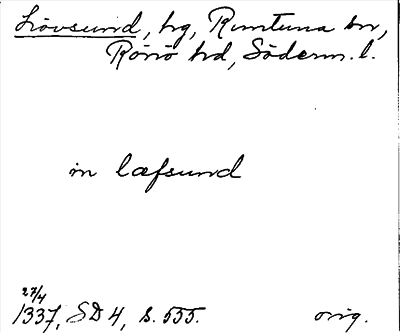 Lövsund, hg, Runtuna sn,
Rönö hd, Söderm. l.
in læfsund
27/4
1337, SD 4, s. 555.
orig.